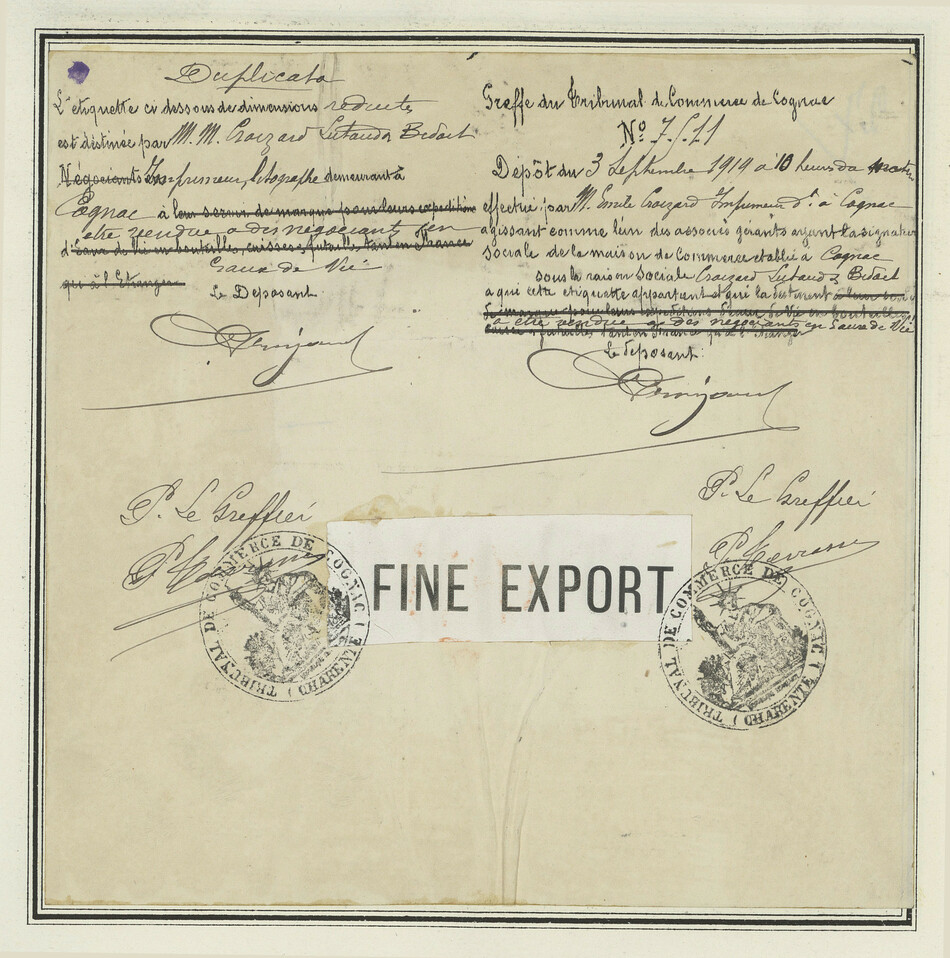 Duplicata
L'étiquette ci dessous de dimensions reduite
est destinée par M. M. Croizard Lutaud & Bedart
Négociants Imprimeur, litographe demeurant à
Cognac à
etre vendue a des negociants en
d'Eaux de Vie en bouteilles, caisses, futailles tant en France
Eaux de Vie
qui à l'Etranger
Le Déposant
P. Le Greffier
Greffe du Tribunal de Commerce de Cognac
No 7.511
Dépôt du 3 Septembre 1919 à 10 heures du
effectué par M. Emile Croizard Imprimeur dt. à Cognac
agissant comme l'un des associés gérants ayant la signature
Sociale de la maison de Commerce établie à Cognac
sous la raison Sociale Croizard Lutaud & Bedart
a qui cette etiquette appartient et qui la destinent
à etre vendue a des negociants en Eaux de Vie
Le déposant:
P. Le Greffier
FINE EXPORT
TRIBUNAL DE COMMERCE DE COGNAC (CHARENTE)
TRIBUNAL DE COMMERCE DE COGNAC (CHARENTE)